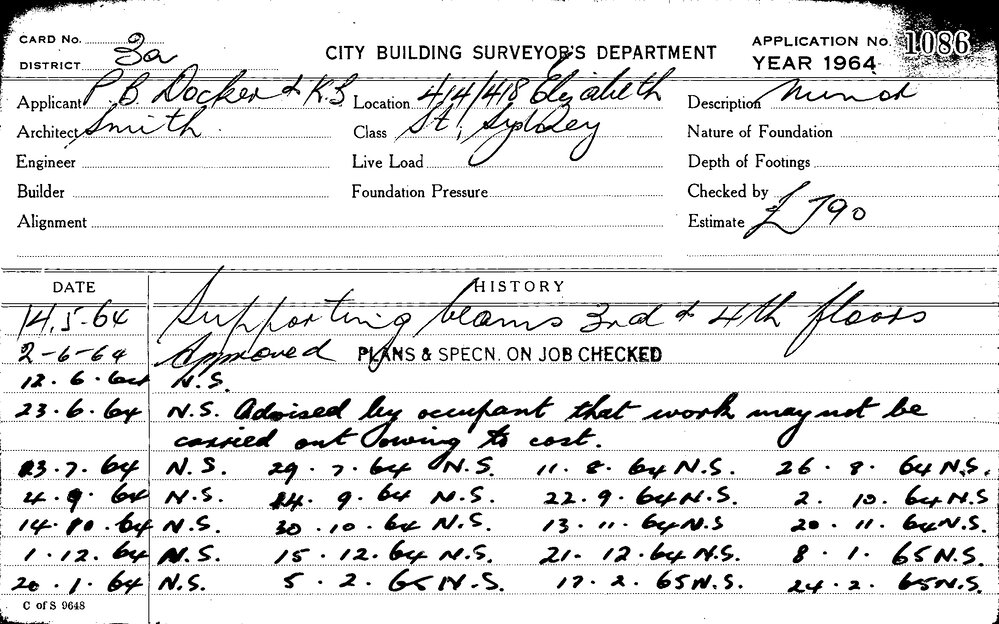 CARD No.
DISTRICT 3a
CITY BUILDING SURVEYOR'S DEPARTMENT
APPLICATION No. 1086
YEAR 1964
Applicant P.B. Docker & K.B.
Architect Smith
Engineer
Builder
Alignment
Location 414/418 Elizabeth
Class St, Sydney
Live Load
Foundation Pressure
Description Minor
Nature of Foundation
Depth of Footings
Checked by
Estimate £790
DATE HISTORY
14.5.64 Supporting beams 3rd & 4th floors
2-6-64 Approved PLANS & SPECN. ON JOB CHECKED
12.6.64 N.S.
23.6.64 N.S. Advised by occupant that work may not be
carried out owing to cost.
23.7.64 N.S. 29.7.64 N.S. 11.8.64 N.S. 26.8.64 N.S.
4.9.64 N.S. 14.9.64 N.S. 22.9.64 N.S. 2.10.64 N.S
14.10.64 N.S. 30.10.64 N.S. 13.11.64 N.S 20.11.64 N.S.
1.12.64 N.S. 15.12.64 N.S. 21.12.64 N.S. 8.1.65 N.S.
20.1.64 N.S. 5.2.65 N.S. 17.2.65 N.S. 24.2.65 N.S.
C of S 9648